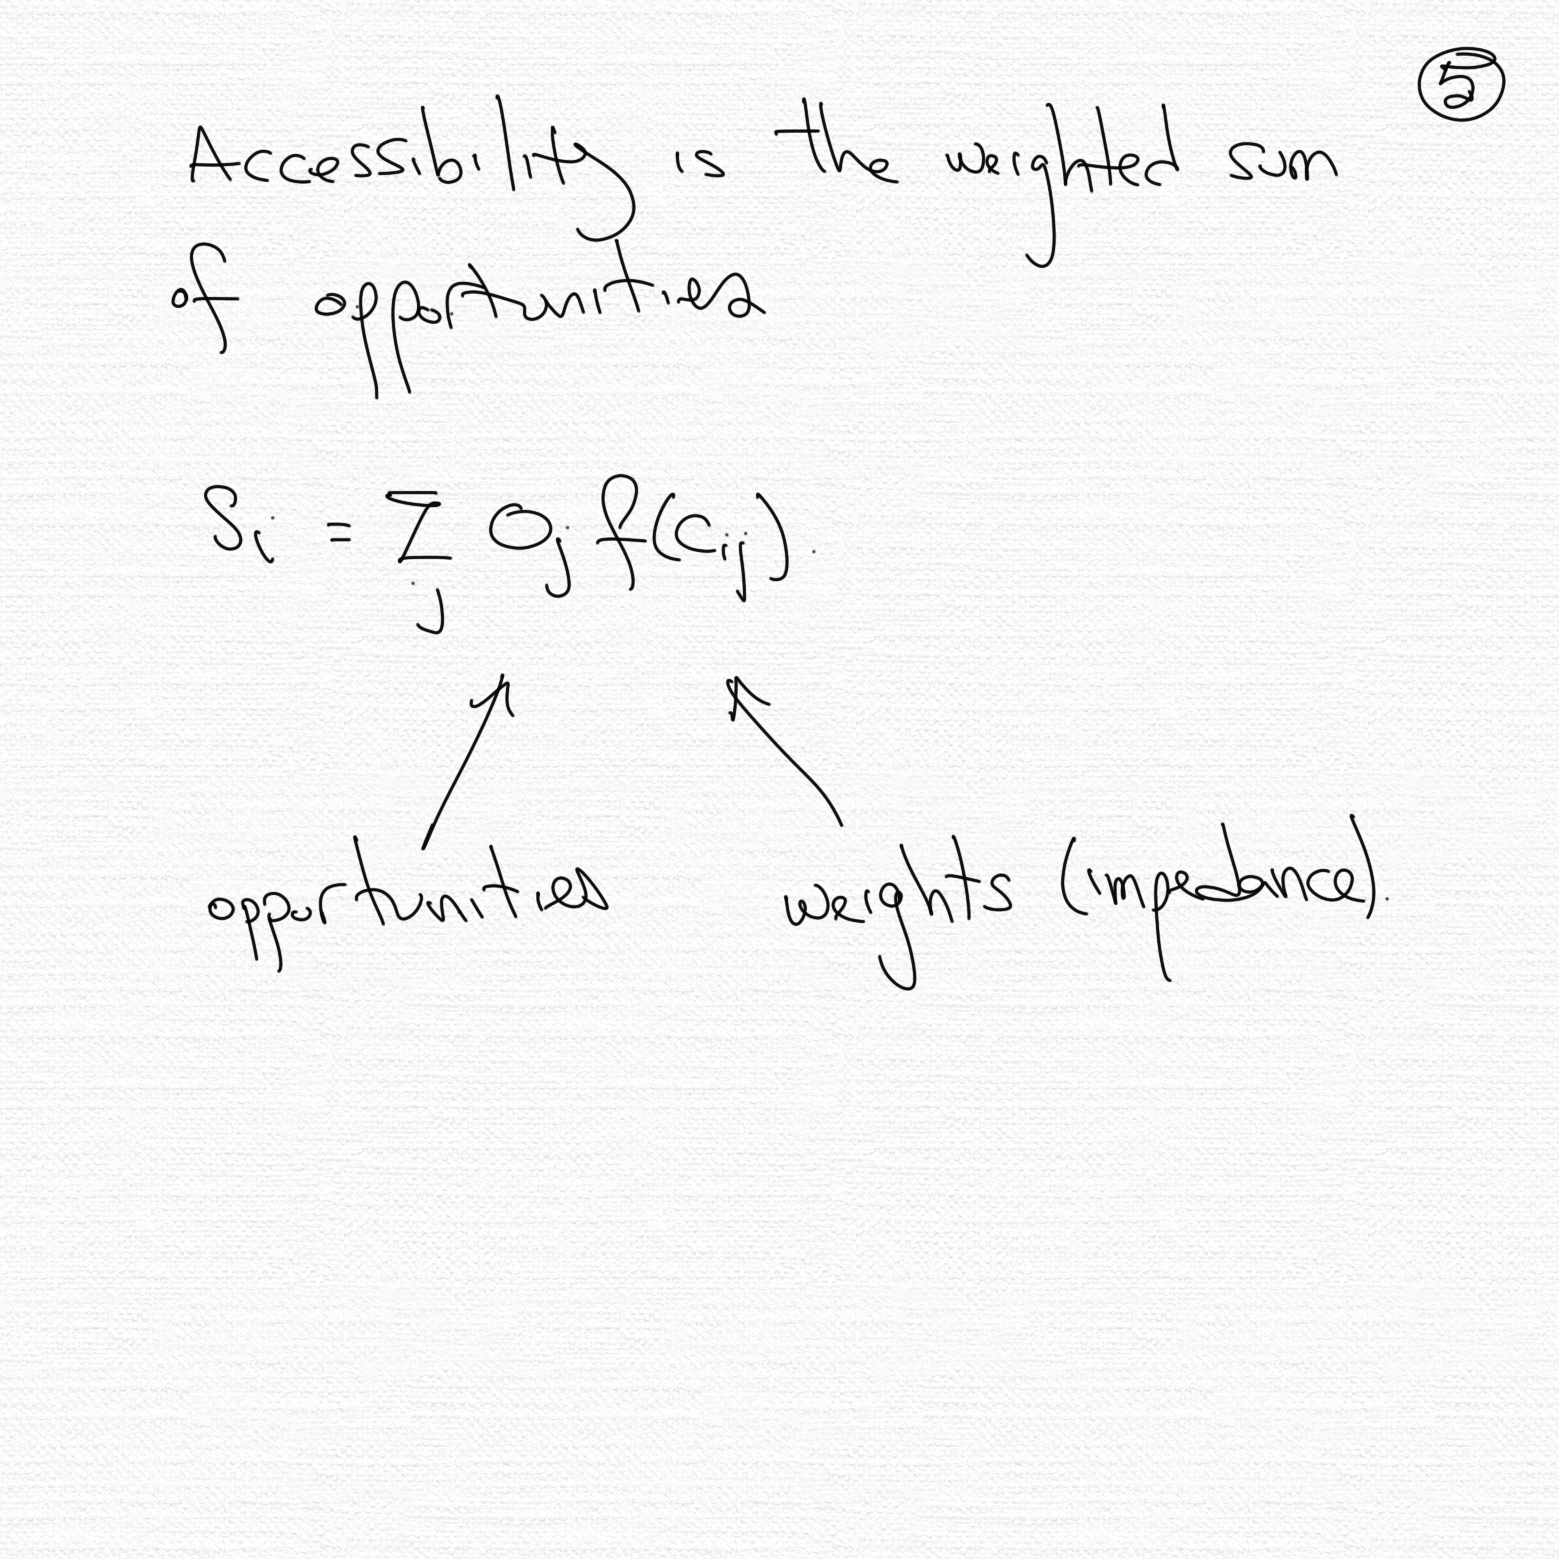 5
Accessibility is the weighted sum
of opportunities
Si = Σj Oj f(cij).
opportunities
weights (impedance).